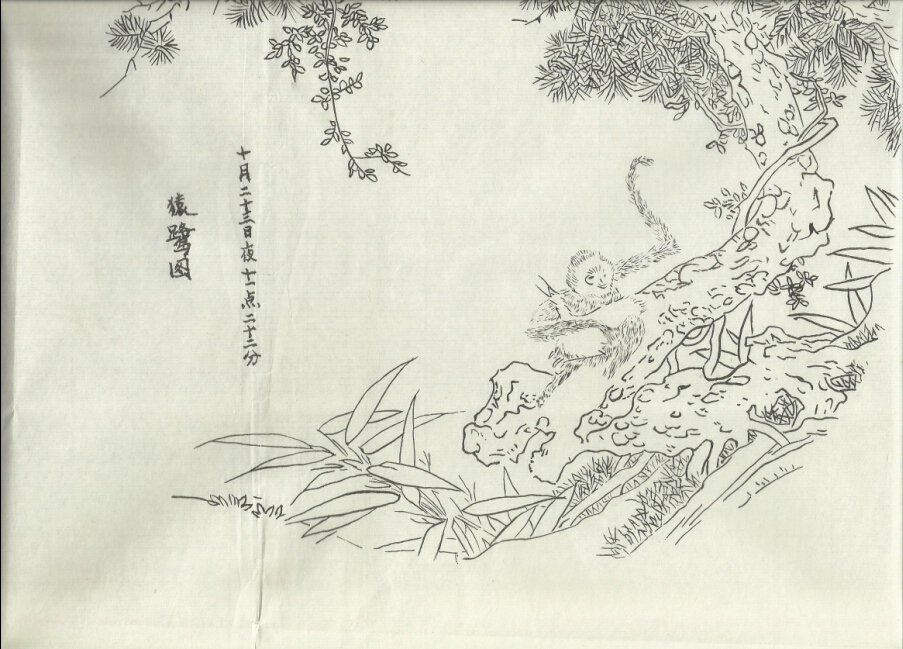 十月二十三日夜十一点二十二分
猿鹭图